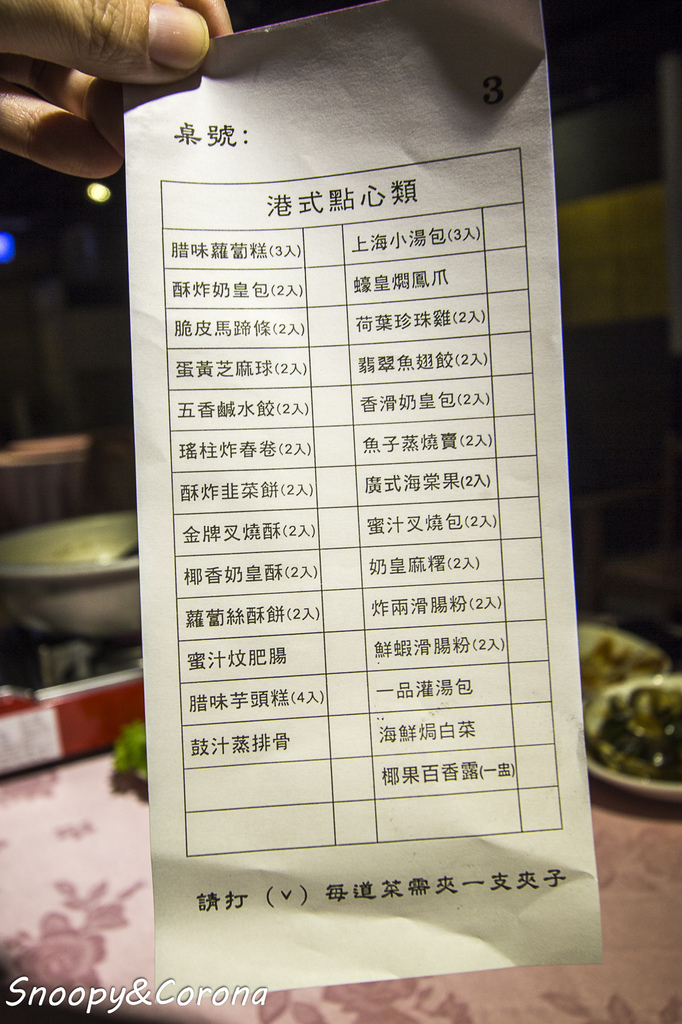 3
桌號:
港式點心類
腊味蘿蔔糕(3入) 上海小湯包(3入)
酥炸奶皇包(2入) 蠔皇燜鳳爪
脆皮馬蹄條(2入) 荷葉珍珠雞(2入)
蛋黃芝麻球(2入) 翡翠魚翅餃(2入)
五香鹹水餃(2入) 香滑奶皇包(2入)
瑤柱炸春卷(2入) 魚子蒸燒賣(2入)
酥炸韭菜餅(2入) 廣式海棠果(2入)
金牌叉燒酥(2入) 蜜汁叉燒包(2入)
椰香奶皇酥(2入) 奶皇麻糬(2入)
蘿蔔絲酥餅(2入) 炸兩滑腸粉(2入)
蜜汁炆肥腸 鮮蝦滑腸粉(2入)
腊味芋頭糕(4入) 一品灌湯包
鼓汁蒸排骨 海鮮焗白菜
椰果百香露(一盅)
請打 (∨) 每道菜需夾一支夾子
Snoopy&Corona